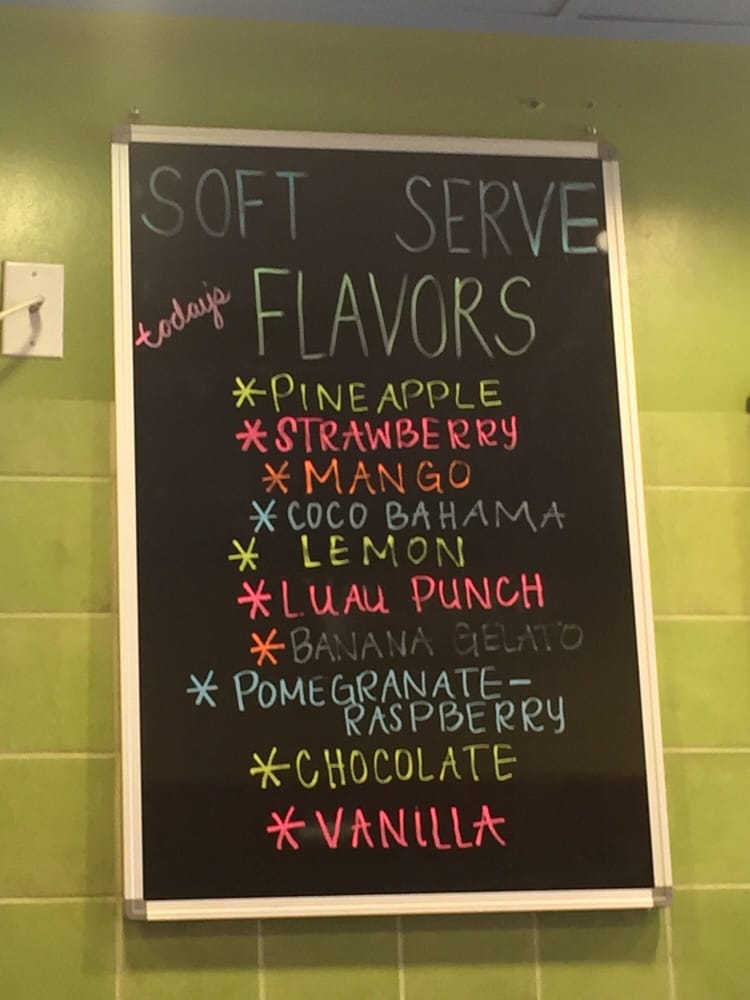 SOFT SERVE
today's FLAVORS
*PINEAPPLE
*STRAWBERRY
*MANGO
*COCO BAHAMA
* LEMON
*LUAU PUNCH
*BANANA GELATO
* POMEGRANATE-
RASPBERRY
*CHOCOLATE
*VANILLA